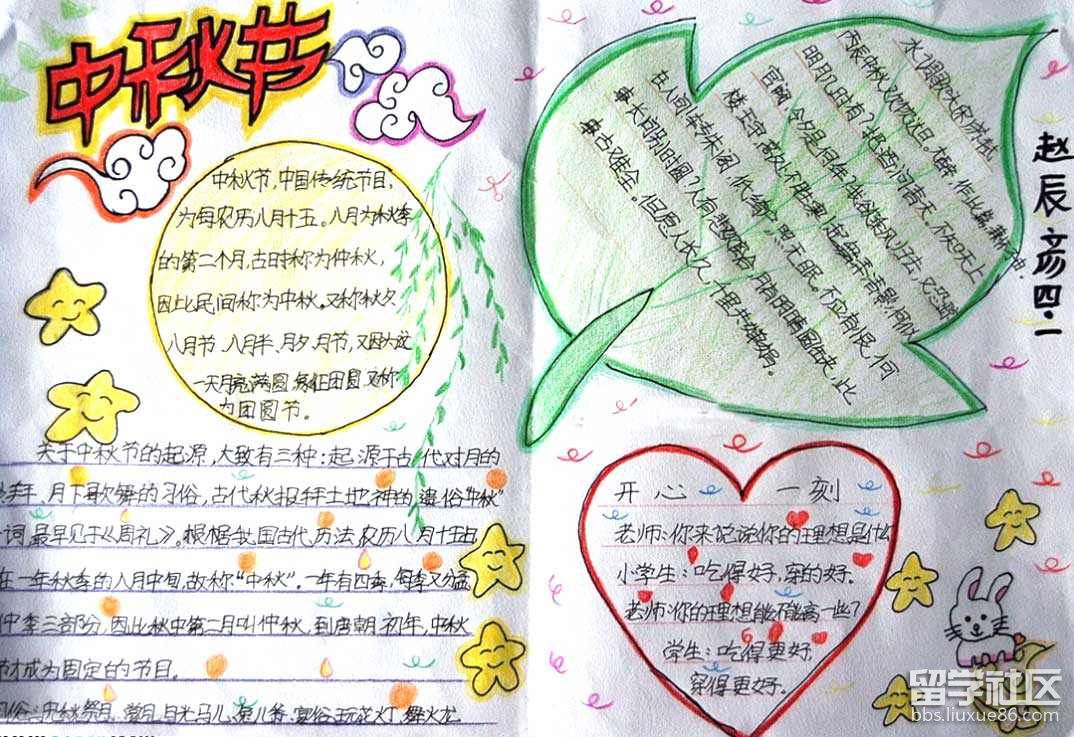 中秋节
中秋节，中国传统节目，
为每农历八月十五。八月为秋季
的第二个月，古时称为仲秋，
因此民间称为中秋。又称秋夕
八月节、八月半、月夕、月节，又因为这
一天月亮满圆，象征团圆，又称
为团圆节。
关于中秋节的起源，大致有三种：起源于古代对月的
月下歌舞的习俗，古代秋报拜土地神的遗俗"中秋"
一词，最早见于《周礼》。根据我国古代历法，农历八月十五由
在一年秋季的八月中旬，故称"中秋"。一年有四季，每季又分孟
仲季三部分，因此秋中第二月叫仲秋，到唐朝初年，中秋
节才成为固定的节目。
习俗：中秋祭月、赏月、月光马儿、兔儿爷、宴俗、玩花灯、舞火龙
水调歌头 宋 苏轼
丙辰中秋，欢饮达旦。大醉，作此篇，兼怀子由。
明月几时有？把酒问青天，不知天上
宫阙，今夕是何年？我欲乘风归去，又恐琼
楼玉宇，高处不胜寒！起舞弄清影，何似
在人间！转朱阁，低绮户，照无眠。不应有恨，何
事长向别时圆？人有悲欢离合，月有阴晴圆缺，此
事古难全。但愿人长久，千里共婵娟。
赵辰彦 四·一
开心一刻
老师：你来说说你的理想是什么
小学生：吃得好，穿的好。
老师：你的理想能不能高一些？
学生：吃得更好，
穿得更好。
留学社区
bbs.liuxue86.com